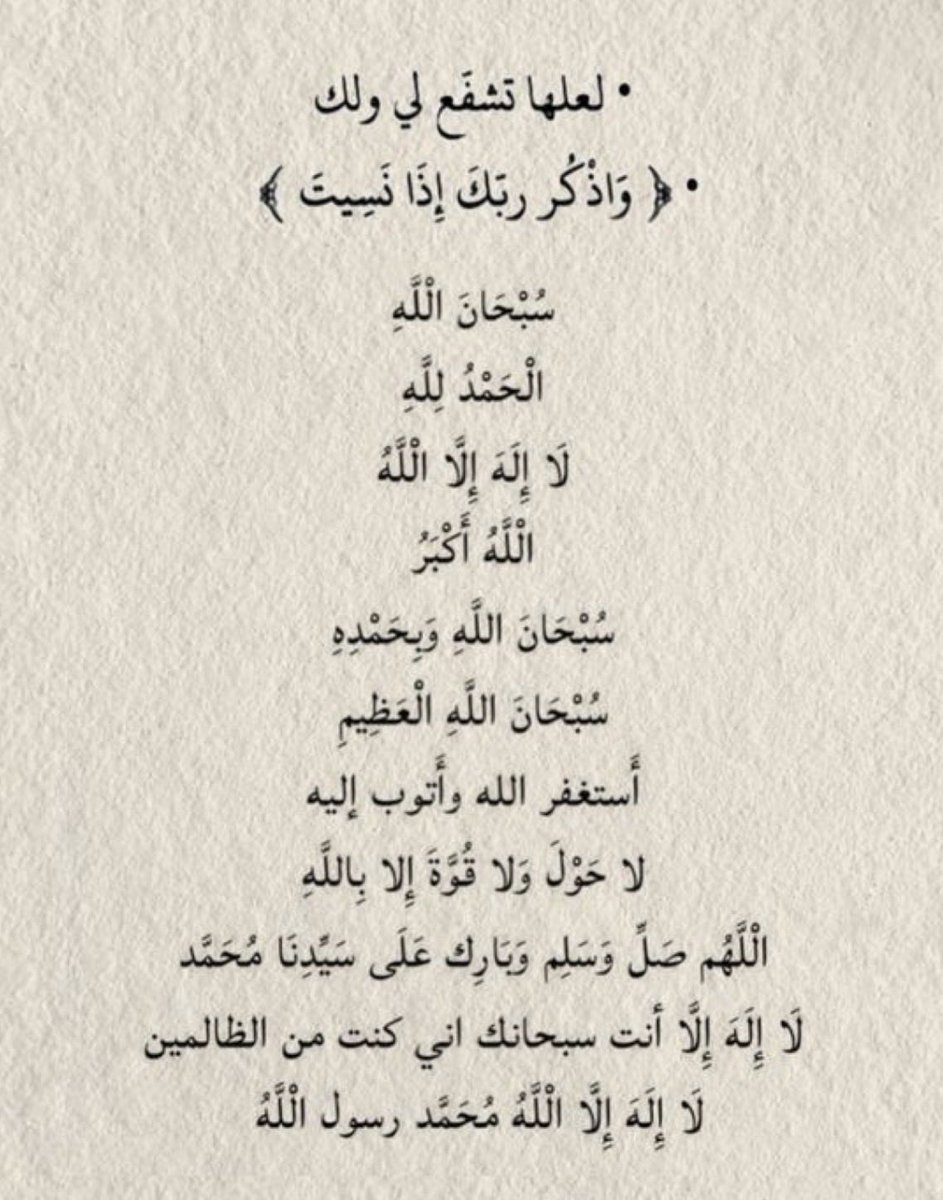 • لعلها تشفَع لي ولك
• ﴿ وَاذْكُر ربّكَ إِذَا نَسِيتَ ﴾
سُبْحَانَ الْلَّهِ
الْحَمْدُ لِلَّهِ
لَا إِلَهَ إِلَّا الْلَّهُ
الْلَّهُ أَكْبَرُ
سُبْحَانَ اللَّهِ وَبِحَمْدِهِ
سُبْحَانَ اللَّهِ الْعَظِيمِ
أَستغفر الله وأَتوب إليه
لا حَوْلَ وَلا قُوَّةَ إِلا بِاللَّهِ
الْلَّهُم صَلِّ وَسَلِم وَبَارِك عَلَى سَيِّدِنَا مُحَمَّد
لَا إِلَهَ إِلَّا أنت سبحانك اني كنت من الظالمين
لَا إِلَهَ إِلَّا الْلَّهُ مُحَمَّد رسول الْلَّهُ